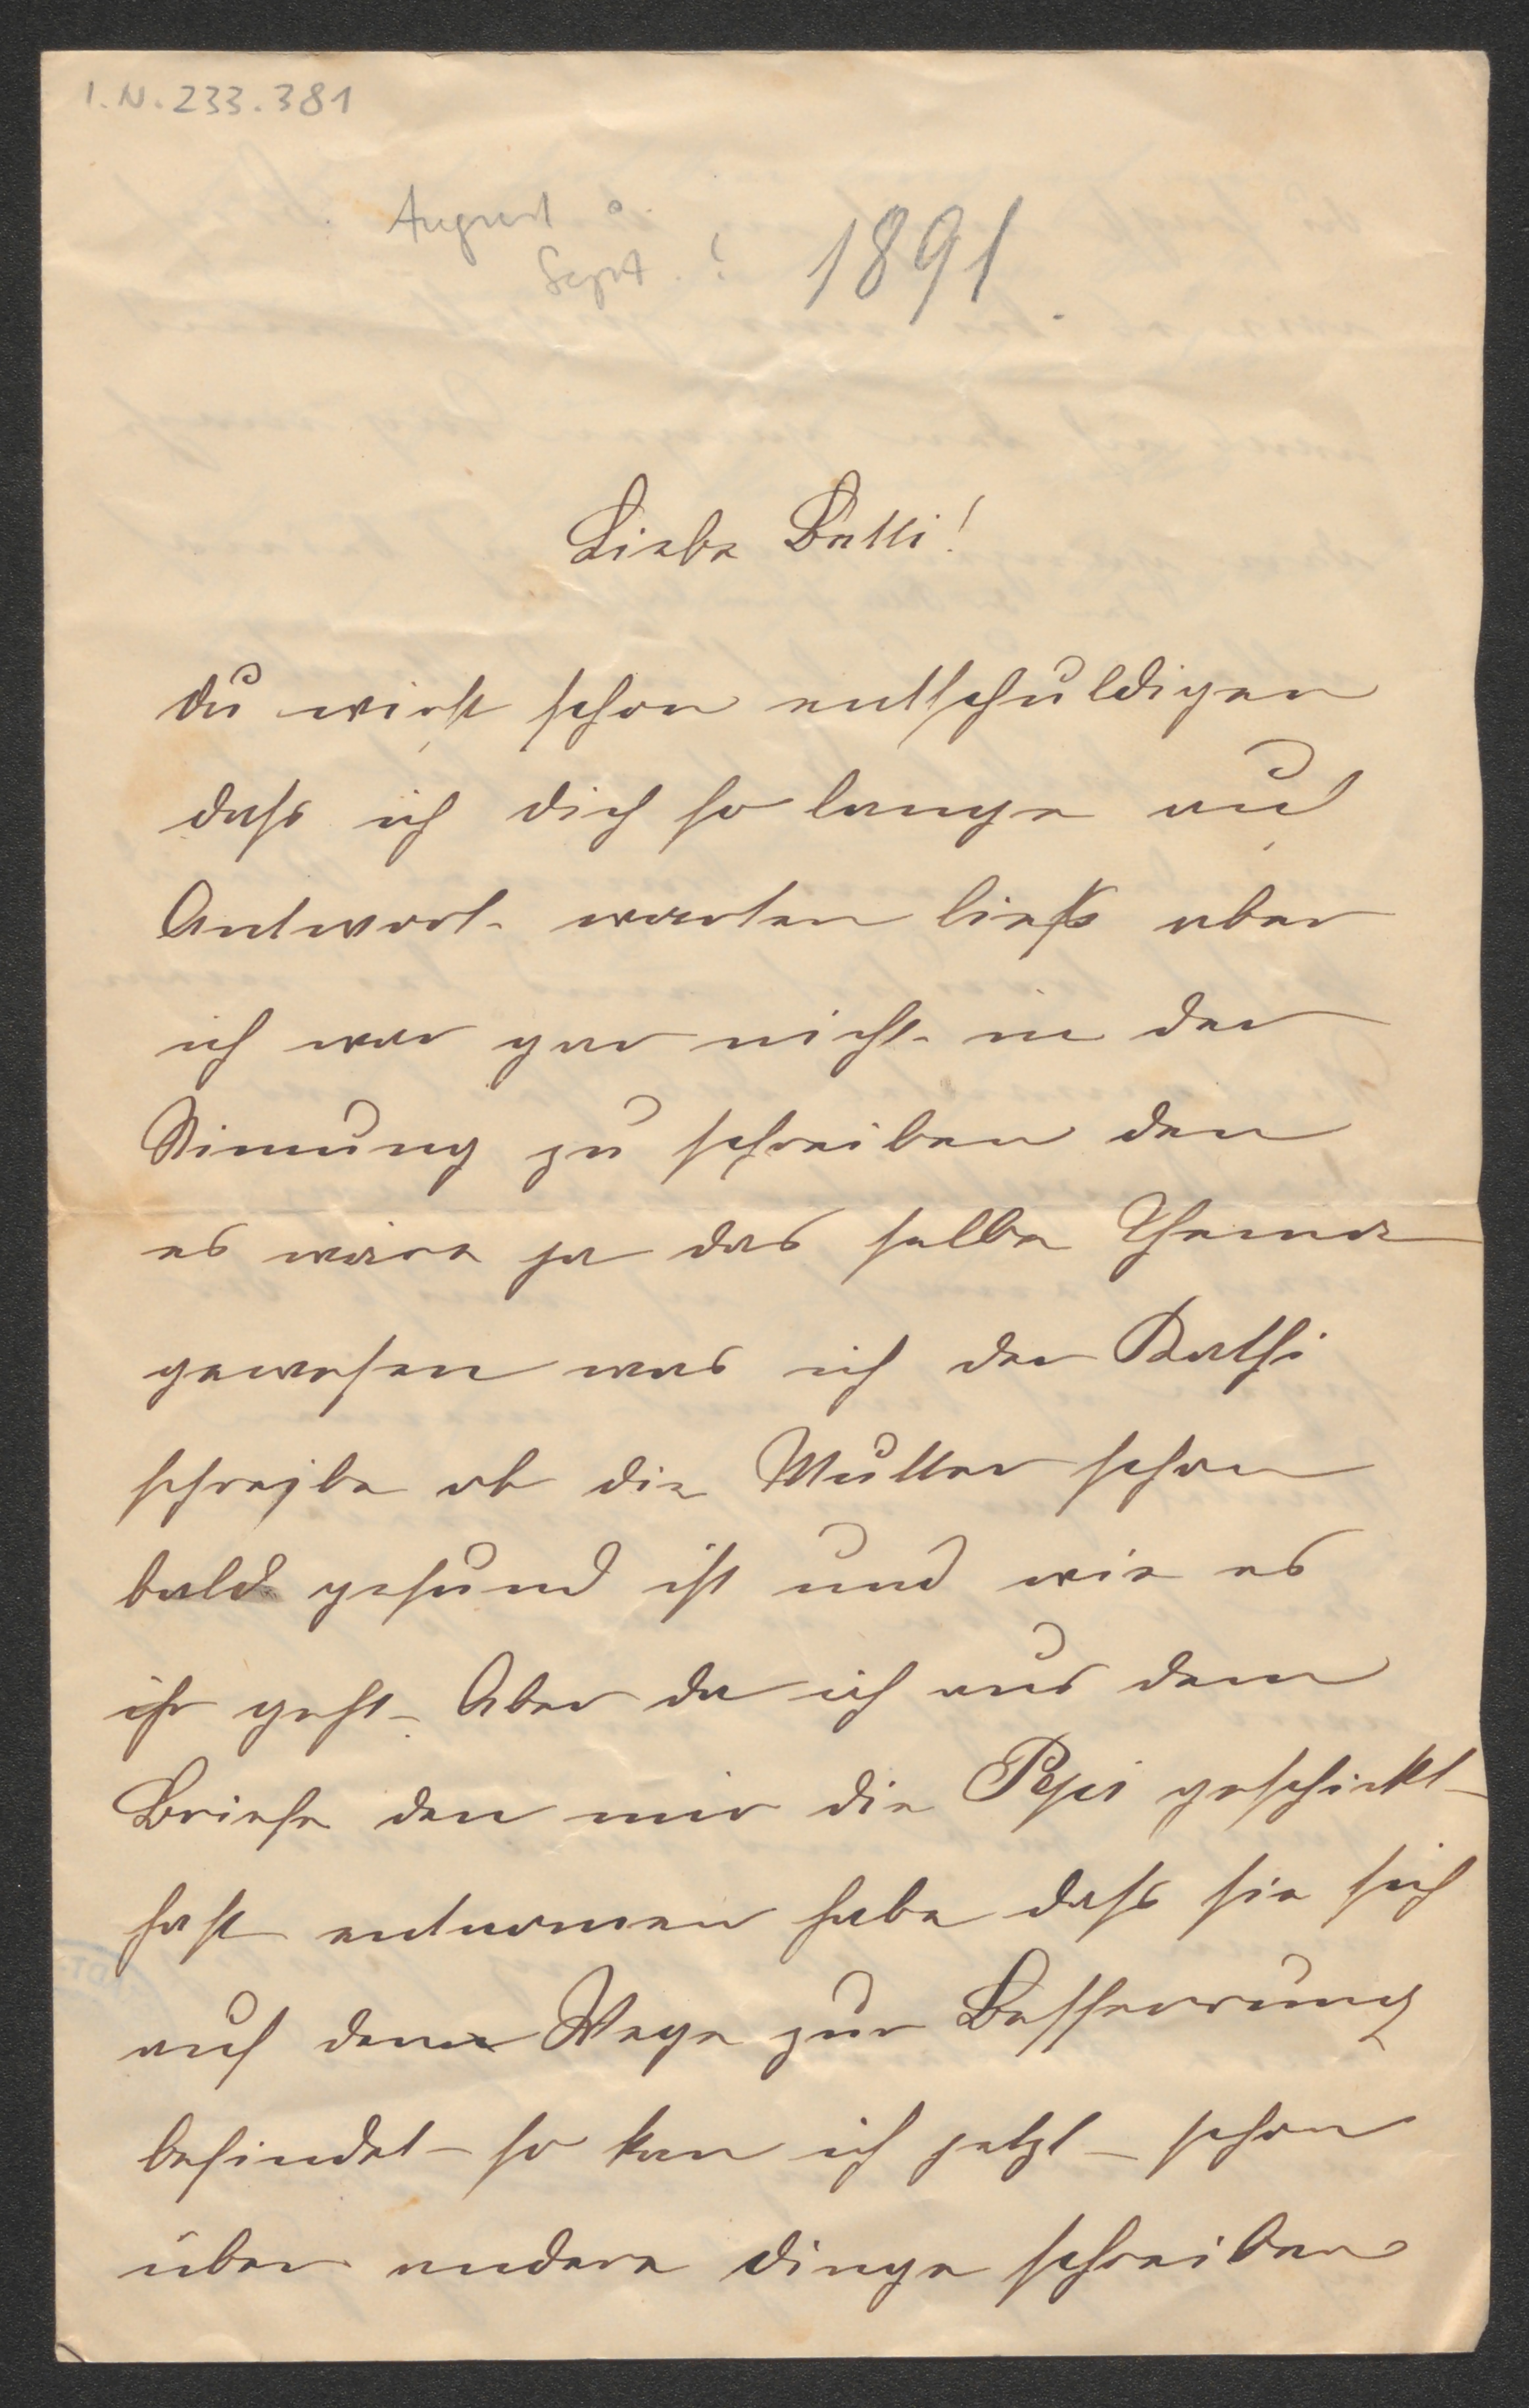 I.N. 233.381
August o.
Sept. ?
1891
Liebe Betti!
du wirst schon entschuldigen
dass ich dich so lange auf
Antwort warten liess aber
ich war gar nicht in der
Stimung zu schreiben den
es wäre ja das selbe Thema
gewesen was ich der Kathi
schreibe ob die Mutter schon
bald gesund ist und wie es
ihr geht. Aber da ich aus dem
Briefe den mir die Pepi geschickt
hast entnomen habe dass sie sich
auf dem Wege zur Besserung
befindet so kan ich jetzt schon
über andere dinge schreiben